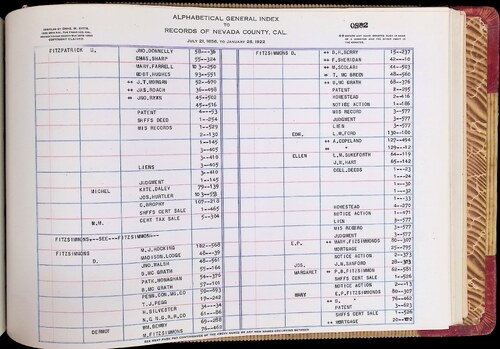 ALPHABETICAL GENERAL INDEX
TO
RECORDS OF NEVADA COUNTY, CAL.
JULY 21, 1855, TO JANUARY 28, 1952
FITZPATRICK
JNO. DONNELLY 50--36
CHAS. SHARP 55--324
MARY FARRELL 103--250
ROBT. HUGHES 93--551
++ J.T. MORGAN 52--670
++ JAS. ROACH 36--498
JNO. RYAN 45--502
45--516
PATENT 4---53
SHFFS DEED 1--254
MIS RECORDS 1--529
2--130
1--145
3--405
3--410
LIENS 3--405
3--410
JUDGMENT 1--145
MICHAEL KATE DALEY 79--139
JOS. HURTLER 103--553
C. BROPHY 107--210
SHFFS CERT SALE 1--465
M.M. CERT TAX SALE 5--364
FITZSIMMONS---SEE---FITZSIMMON--
FITZSIMMONS M.J. HOCKING 182--568
MADISON LODGE 48--39
D. JNO. WALSH 48--561
B. MC GRATH 55--164
PATK. MONAGHAN 54--376
B. MC GRATH 57--102
PENN. CON. MG. CO 50--693
T.J. PEGG 17--242
H. SILVESTER 34---34
N.C.N.G.R.R.CO 61--86
WM. BERRY 69--258
DERMOT M. FITZSIMONS 76--462
FITZSIMONS D. ++ G.H. BERRY 15--237
++ F. SHERIDAN 42---10
M. SCOLARI 44--503
T. MC BREEN 48--560
++ B. MC GRATH 68--376
PATENT 3--295
HOMESTEAD 2--416
NOTICE ACTION 1--186
MIS RECORD 3--577
JUDGMENT 3--577
LIEN 3--577
EDW. L.W. FORD 130--180
++ A. COPELAND 127--494
++ " 129--12
ELLEN L.M. SUKEFORTH 64--119
J.R. HART 65--142
COLL. DEEDS 1---23
1---24
1---30
1---32
1---33
HOMESTEAD 4--270
NOTICE ACTION 1--471
LIEN 3--577
MIS RECORD 3--577
JUDGMENT 3--577
++ MARY FITZSIMMONDS 80--307
MORTGAGE 25--795
NOTICE ACTION 2--373
JOS. J.B. SANFORD
MARGARET ++ P.B. FITZSIMON 60--581
SHFFS CERT SALE 1--526
NOTICE ACTION 2---13
MARY E.P. FITZSIMMONDS 80--307
++ D. " 3--462
PATENT 3--462
SHFFS CERT SALE 1--526
++ MORTGAGE